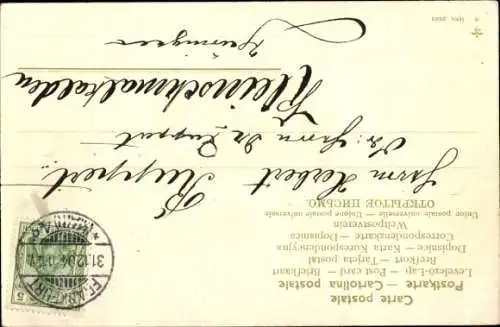 Carte postale
Postkarte – Cartolina postale
Levelező-Lap – Post card – Briefkaart
Brefkort – Tarjeta postal
Dopisnice – Karta Korespondencyjna
Correspondenzkarte – Dopisnica
Weltpostverein
Union postale universelle – Unione postale universale
ОТКРЫТОЕ ПИСЬМО.
Herrn Herbert Ruppert
Herrn Dr. Ruppert
Kleinschmalkalden
Thüringen
FRANKFURT
31.12.04
5